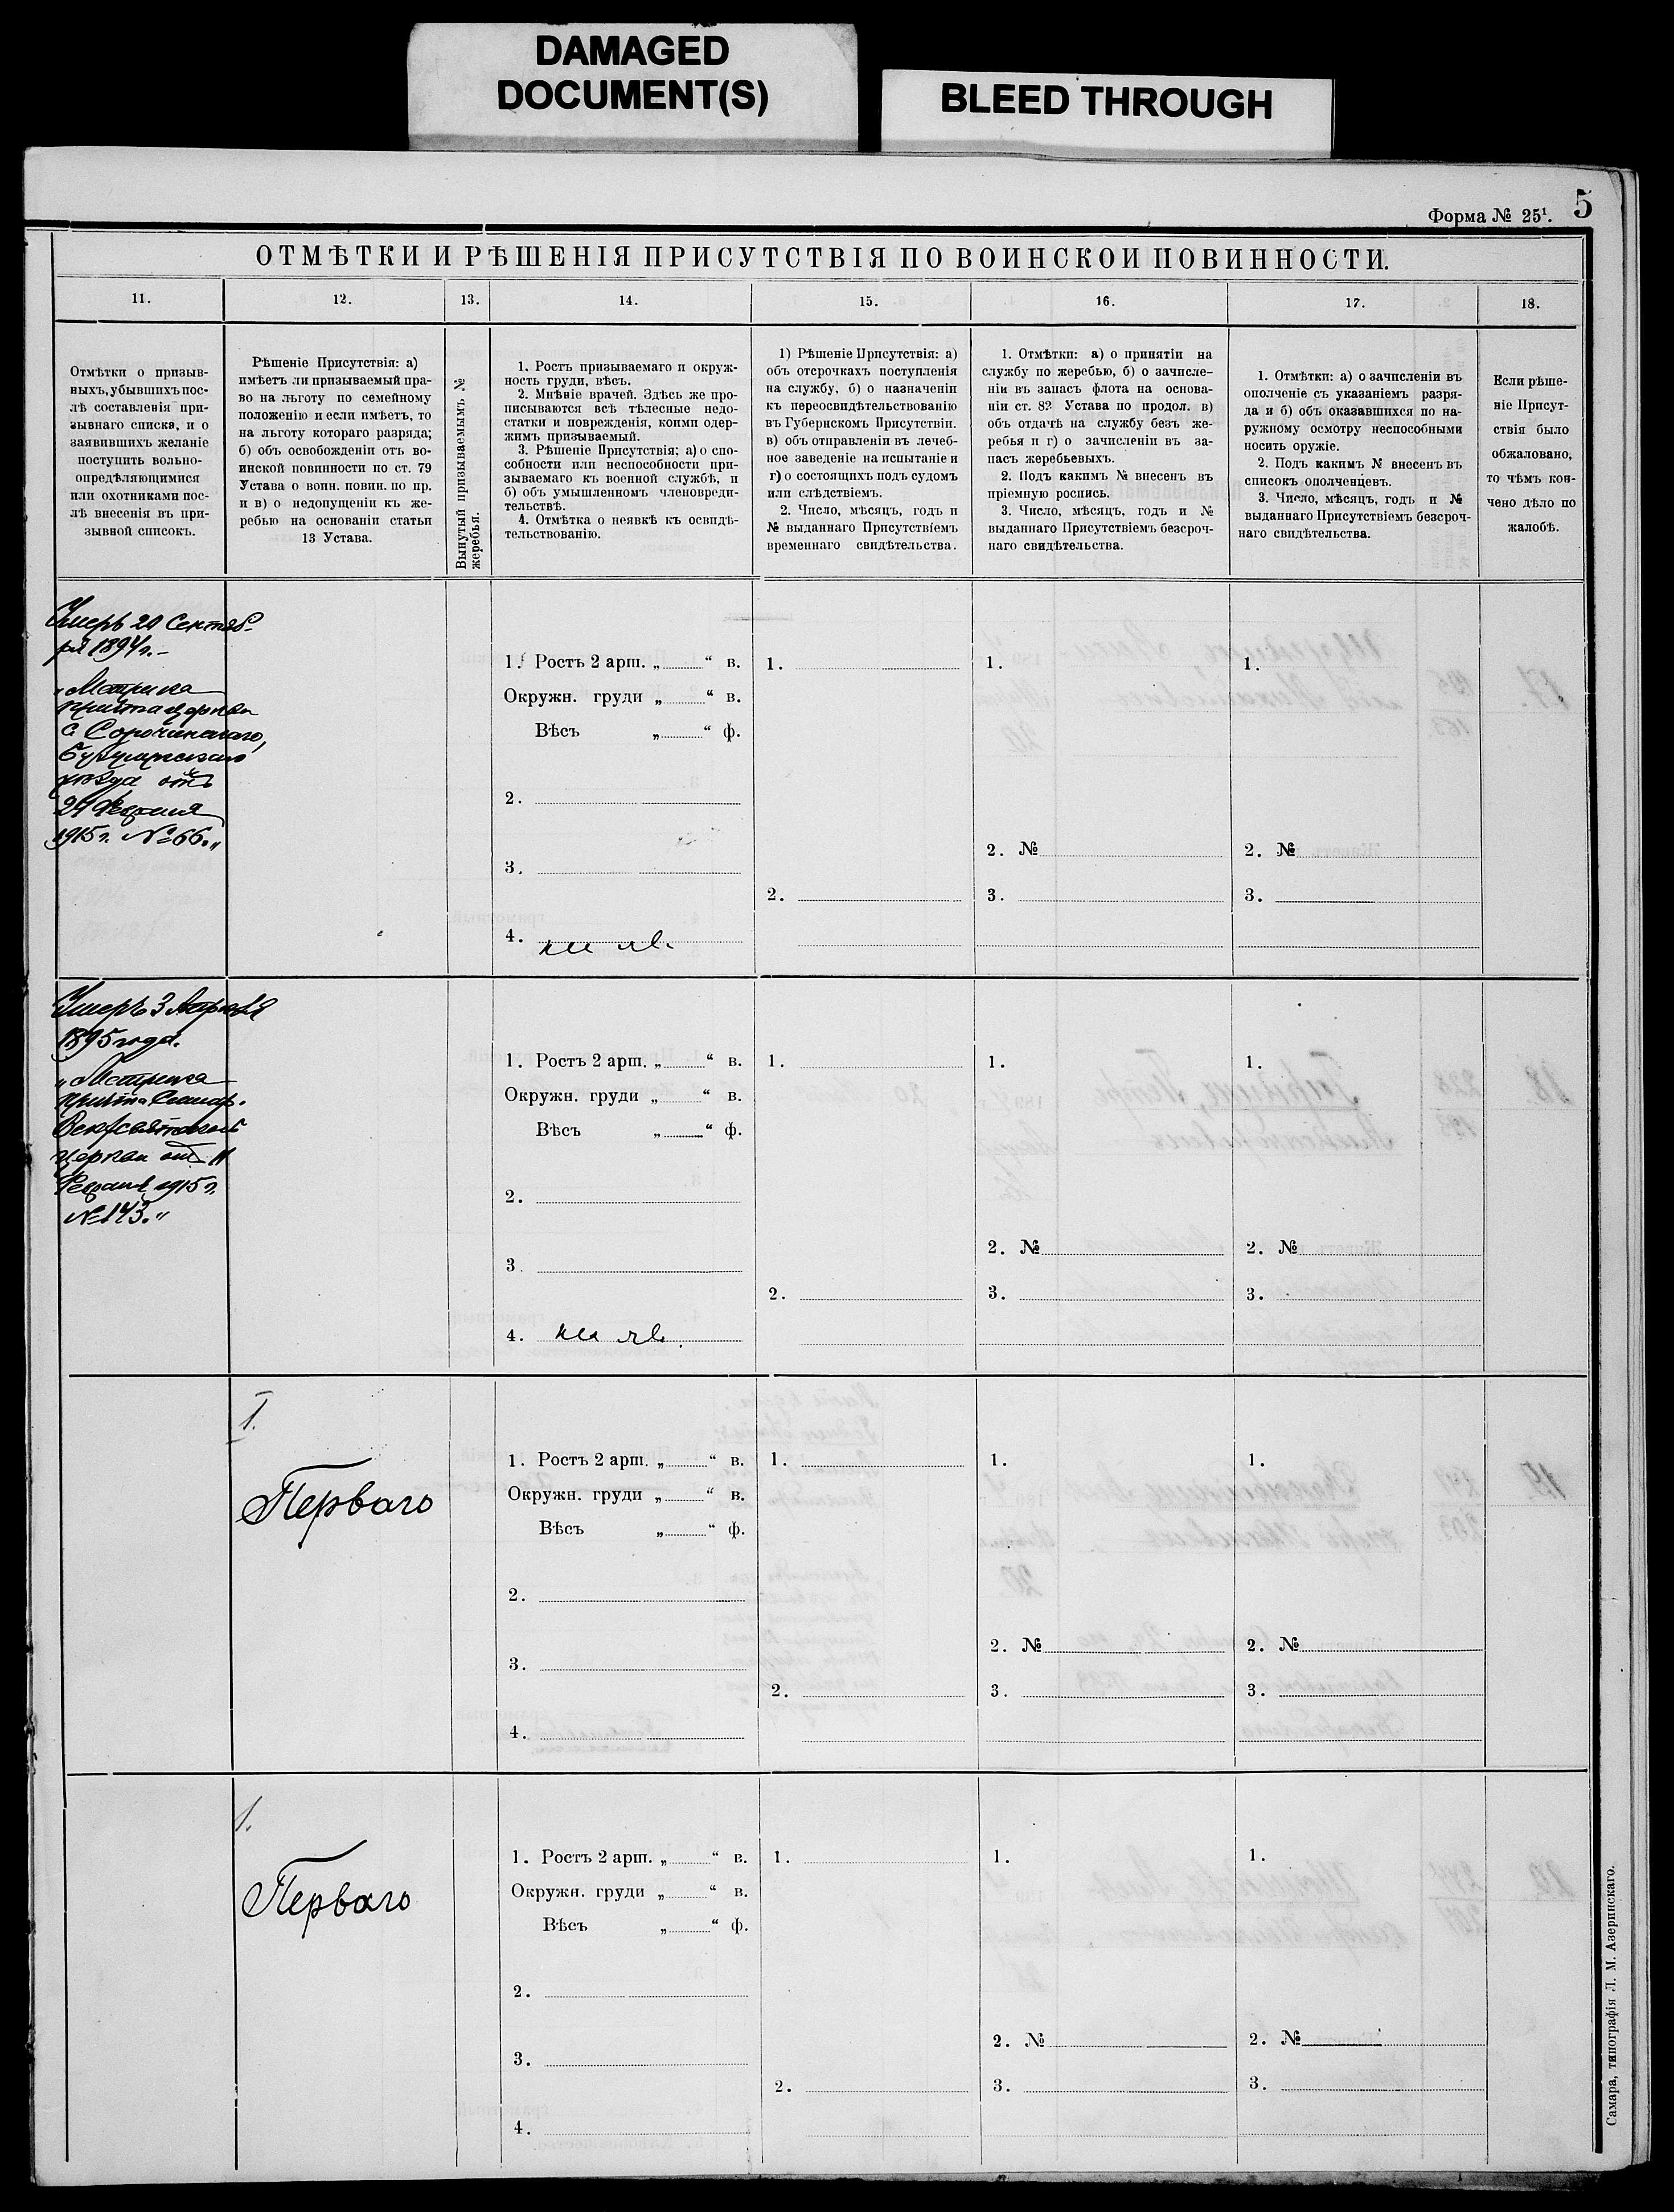 DAMAGED
DOCUMENT(S)
BLEED THROUGH
5
Форма № 25¹.
ОТМѢТКИ И РѢШЕНІЯ ПРИСУТСТВІЯ ПО ВОИНСКОЙ ПОВИННОСТИ.
11.
12.
13.
14.
15.
16.
17.
18.
Отмѣтки о призыв-
ныхъ, убывшихъ пос-
лѣ составленія при-
зывнаго списка, и о
заявившихъ желаніе
поступить вольно-
опредѣляющимися
или охотниками пос-
лѣ внесенія въ при-
зывной списокъ.
Рѣшеніе Присутствія: а)
имѣетъ ли призываемый пра-
во на льготу по семейному
положенію и если имѣетъ, то
на льготу котораго разряда;
б) объ освобожденіи отъ во-
инской повинности по ст. 79
Устава о воин. повин. по пр.
и в) о недопущеніи къ же-
ребью на основаніи статьи
13 Устава.
Вынутый призываемымъ №
жеребья.
1. Ростъ призываемаго и окруж-
ность груди, вѣсъ.
2. Мнѣніе врачей. Здѣсь же про-
писываются всѣ тѣлесные недо-
статки и поврежденія, коими одер-
жимъ призываемый.
3. Рѣшеніе Присутствія; а) о спо-
собности или неспособности при-
зываемаго къ военной службѣ, и
б) объ умышленномъ членовреди-
тельствѣ.
4. Отмѣтка о неявкѣ къ освидѣ-
тельствованію.
1) Рѣшеніе Присутствія: а)
объ отсрочкахъ поступленія
на службу, б) о назначеніи
къ переосвидѣтельствованію
въ Губернскомъ Присутствіи.
в) объ отправленіи въ лечеб-
ное заведеніе на испытаніе и
г) о состоящихъ подъ судомъ
или слѣдствіемъ.
2. Число, мѣсяцъ, годъ и
№ выданнаго Присутствіемъ
временнаго свидѣтельства.
1. Отмѣтки: а) о принятіи на
службу по жеребью, б) о зачисле-
ніи въ запасъ флота на основа-
ніи ст. 82 Устава по продол. в)
объ отдачѣ на службу безъ же-
ребья и г) о зачисленіи въ за-
пасъ жеребьевыхъ.
2. Подъ какимъ № внесенъ въ
пріемную роспись.
3. Число, мѣсяцъ, годъ и №
выданнаго Присутствіемъ безсроч-
наго свидѣтельства.
1. Отмѣтки: а) о зачисленіи въ
ополченіе съ указаніемъ разря-
да и б) объ оказавшихся по на-
ружному осмотру неспособными
носить оружіе.
2. Подъ какимъ № внесенъ въ
списокъ ополченцевъ.
3. Число, мѣсяцъ, годъ и №
выданнаго Присутствіемъ безсроч-
наго свидѣтельства.
Если рѣше-
ніе Присут-
ствія было
обжаловано,
то чѣмъ кон-
чено дѣло по
жалобѣ.
Умеръ 20 Сентяб-
ря 1894 г. –
„Метрика
причта церкви
с. Сорочинскаго,
Бузулукскаго
уѣзда отъ
24 Февраля
1915 г. № 66.„
1. Ростъ 2 арш. „ “ в.
Окружн. груди „ “ в.
Вѣсъ „ “ ф.
2.
3.
4. не яв.
1.
2.
1.
2. №
3.
1.
2. №
3.
Умеръ 3 Апрѣля
1895 года.
„Метрика
причта Самар.
Всехсвятской
церкви отъ 11
Февраля 1915 г.
№ 143.„
1. Ростъ 2 арш. „ “ в.
Окружн. груди „ “ в.
Вѣсъ „ “ ф.
2.
3.
4. не яв.
1.
2.
1.
2. №
3.
1.
2. №
3.
I.
Перваго
1. Ростъ 2 арш. „ “ в.
Окружн. груди „ “ в.
Вѣсъ „ “ ф.
2.
3.
4.
1.
2.
1.
2. №
3.
1.
2. №
3.
1.
Перваго
1. Ростъ 2 арш. „ “ в.
Окружн. груди „ “ в.
Вѣсъ „ “ ф.
2.
3.
4.
1.
2.
1.
2. №
3.
1.
2. №
3.
Самара, типографія Л. М. Азеринскаго.